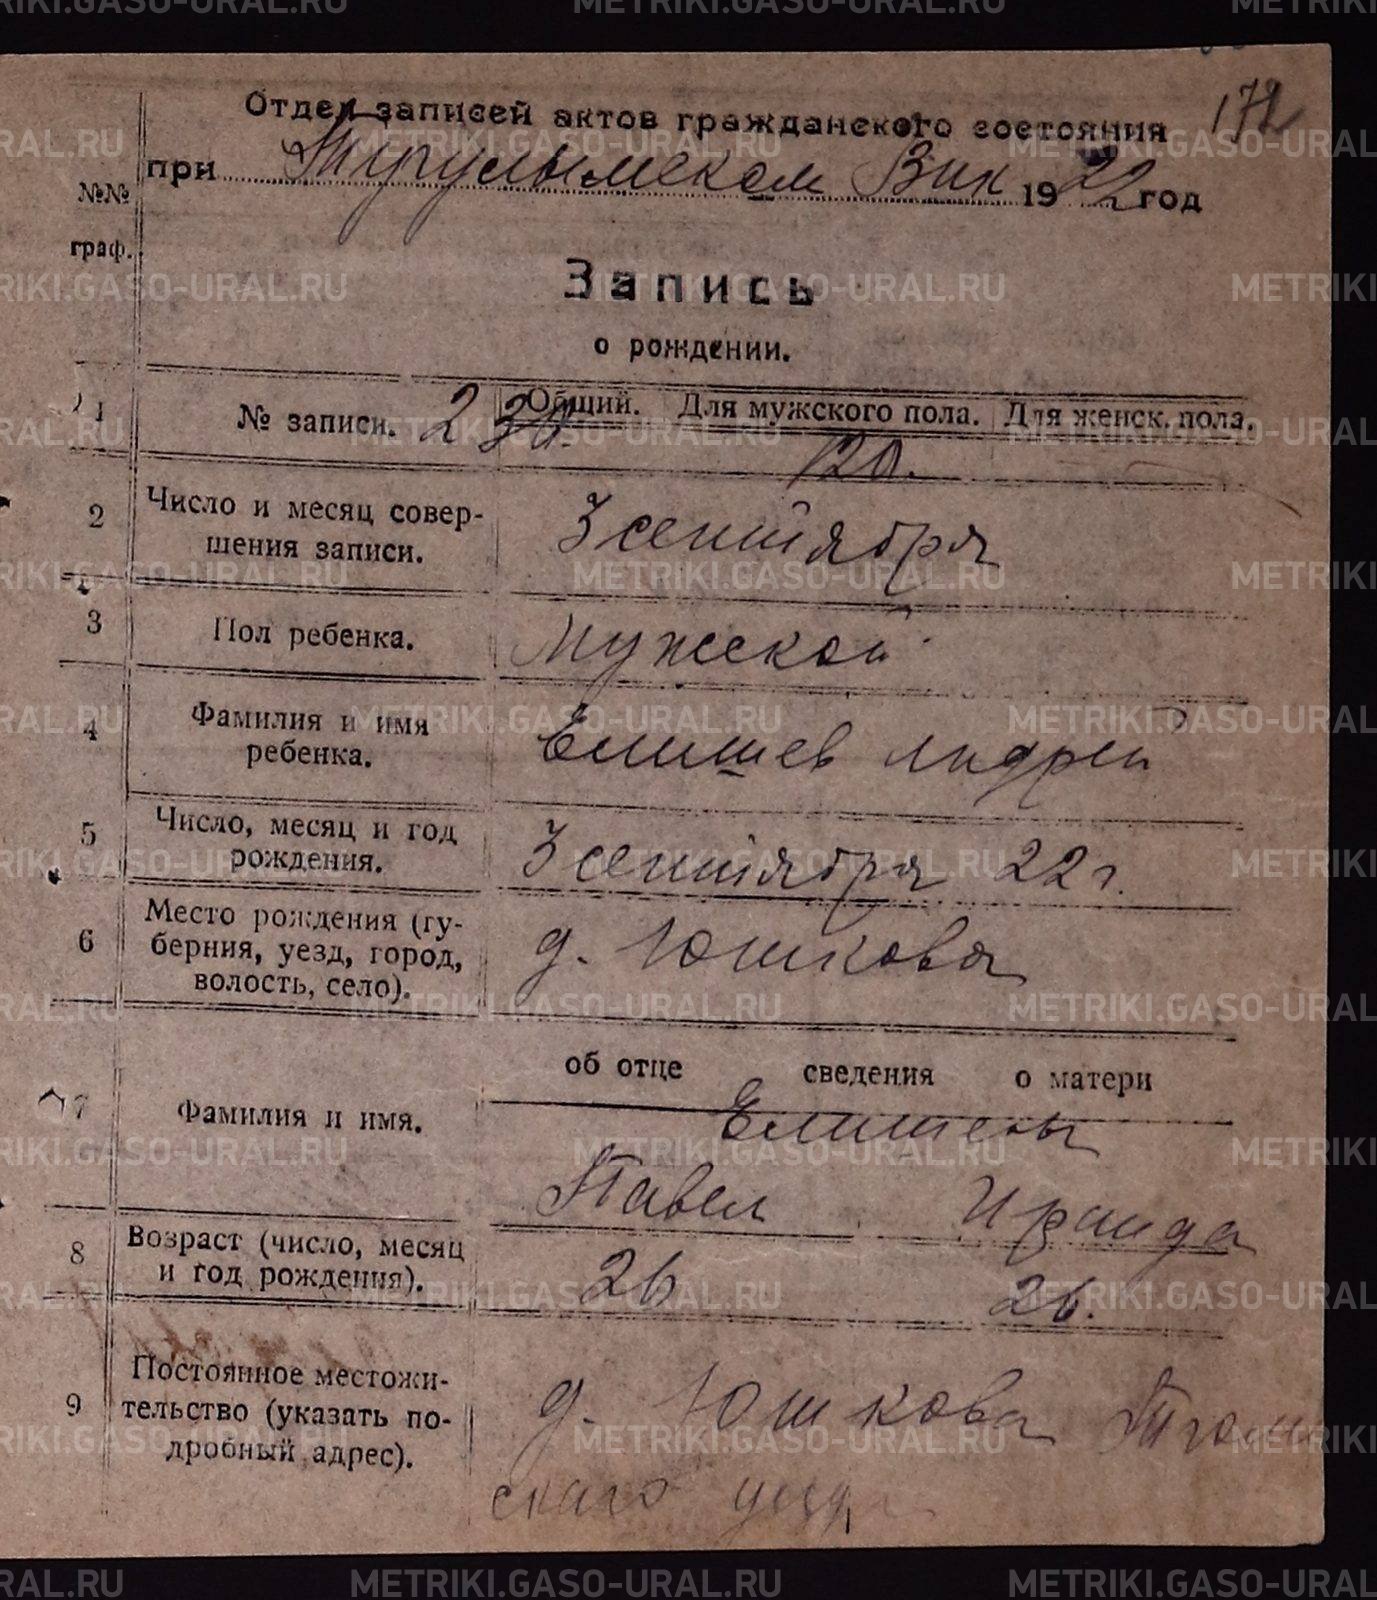 172
Отдел записей актов гражданского состояния
при Тугулымском Вик 1922 год
№№
граф.
Запись
о рождении.
1 № записи. Общий. Для мужского пола. Для женск. пола.
230. 120.
2 Число и месяц совер-
шения записи. 3 сентября
3 Пол ребенка. Мужской
4 Фамилия и имя
ребенка. Елишев Андрей
5 Число, месяц и год
рождения. 3 сентября 22 г.
6 Место рождения (гу-
берния, уезд, город,
волость, село). д. Юшкова
об отце сведения о матери
7 Фамилия и имя. Елишевы
Павел Ираида
8 Возраст (число, месяц
и год рождения). 26 26.
9 Постоянное местожи-
тельство (указать по-
дробный адрес). д. Юшкова
скаго уезда
METRIKI.GASO-URAL.RU